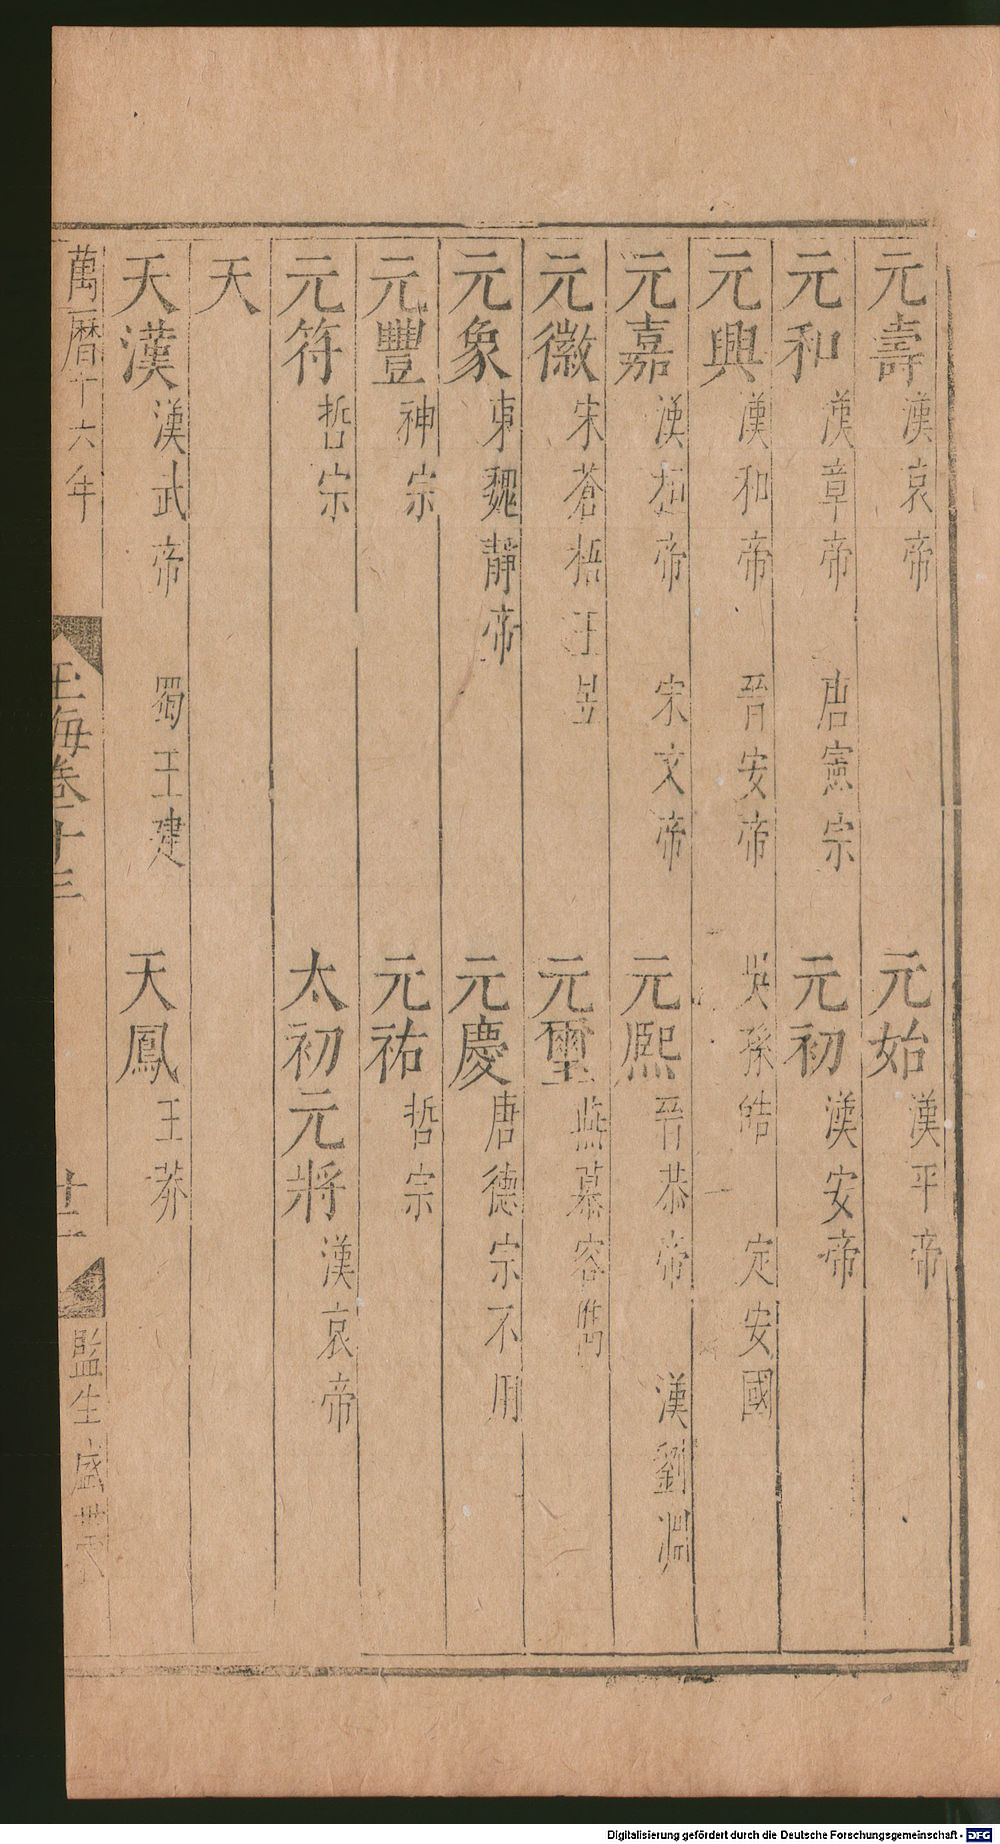 元壽漢哀帝 元始漢平帝
元和漢章帝 唐憲宗 元初漢安帝
元興漢和帝 晉安帝 吳孫皓 定安國
元嘉漢桓帝 宋文帝 元熙晉恭帝 漢劉淵
元徽宋蒼梧王昱 元璽燕慕容雋
元象東魏靜帝 元慶唐德宗不用
元豐神宗 元祐哲宗
元符哲宗 太初元將漢哀帝
天
天漢漢武帝 蜀王建 天鳳王莽
萬曆十六年 玉海卷十三 廿一 監生盛世
Digitalisierung gefördert durch die Deutsche Forschungsgemeinschaft - DFG